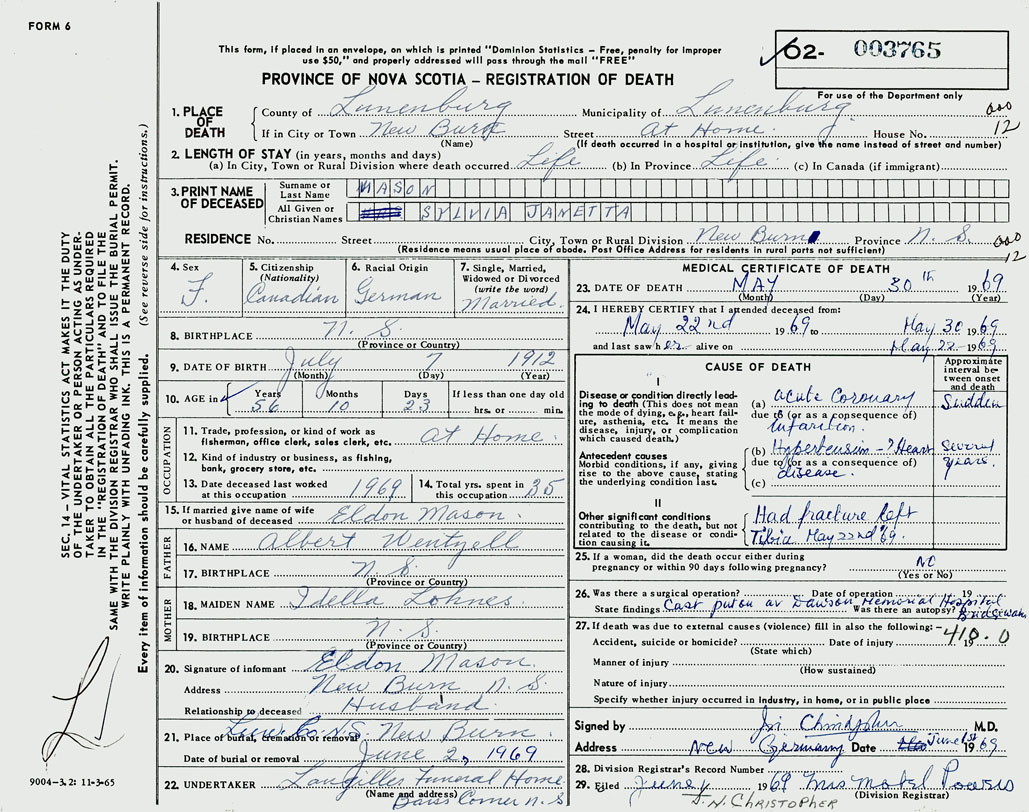 FORM 6
This form, if placed in an envelope, on which is printed "Dominion Statistics – Free, penalty for improper
use $50," and properly addressed will pass through the mail "FREE"
PROVINCE OF NOVA SCOTIA – REGISTRATION OF DEATH
62- 003765
For use of the Department only
1. PLACE OF DEATH County of Lunenburg Municipality of Lunenburg
If in City or Town New Burn Street At Home House No. 12
(Name) (If death occurred in a hospital or institution, give the name instead of street and number)
2. LENGTH OF STAY (in years, months and days)
(a) In City, Town or Rural Division where death occurred Life (b) In Province Life (c) In Canada (if immigrant)
3. PRINT NAME OF DECEASED Surname or Last Name MASON
All Given or Christian Names SYLVIA JANETTA
RESIDENCE No. Street City, Town or Rural Division New Burn Province N. S.
(Residence means usual place of abode. Post Office Address for residents in rural parts not sufficient) 12
4. Sex F.
5. Citizenship (Nationality) Canadian
6. Racial Origin German
7. Single, Married, Widowed or Divorced (write the word) Married.
8. BIRTHPLACE N. S.
(Province or Country)
9. DATE OF BIRTH July 7 1912
(Month) (Day) (Year)
10. AGE in Years 56 Months 10 Days 23 If less than one day old hrs. or min.
OCCUPATION
11. Trade, profession, or kind of work as fisherman, office clerk, sales clerk, etc. At Home.
12. Kind of industry or business, as fishing, bank, grocery store, etc.
13. Date deceased last worked at this occupation 1969 14. Total yrs. spent in this occupation 35
15. If married give name of wife or husband of deceased Eldon Mason.
FATHER
16. NAME Albert Wentzell
17. BIRTHPLACE N. S.
(Province or Country)
MOTHER
18. MAIDEN NAME Idella Lohnes
19. BIRTHPLACE N. S.
(Province or Country)
20. Signature of informant Eldon Mason.
Address New Burn N. S.
Relationship to deceased Husband
21. Place of burial, cremation or removal Lun. Co. N.S. New Burn
Date of burial or removal June 2, 1969
22. UNDERTAKER Langilles Funeral Home
(Name and address)
Corner N. S
MEDICAL CERTIFICATE OF DEATH
23. DATE OF DEATH MAY 30th 1969
(Month) (Day) (Year)
24. I HEREBY CERTIFY that I attended deceased from:
May 22nd 1969 to May 30 1969
and last saw her alive on May 22 1969
CAUSE OF DEATH
Approximate interval between onset and death
I
Disease or condition directly leading to death (This does not mean the mode of dying, e.g., heart failure, asthenia, etc. It means the disease, injury, or complication which caused death.)
(a) acute Coronary Sudden
due to (or as a consequence of)
Infarction.
Antecedent causes
Morbid conditions, if any, giving rise to the above cause, stating the underlying condition last.
(b) Hypertension - ? Heart Several years.
due to (or as a consequence of)
disease.
(c)
II
Other significant conditions contributing to the death, but not related to the disease or condition causing it.
Had fracture left
Tibia May 22nd '69.
25. If a woman, did the death occur either during pregnancy or within 90 days following pregnancy? NO
(Yes or No)
26. Was there a surgical operation? Date of operation 19
State findings Cast put on at Dawson Memorial Hospital Was there an autopsy? Bridgewater
27. If death was due to external causes (violence) fill in also the following: - 410.0
Accident, suicide or homicide? Date of injury 19
(State which)
Manner of injury
(How sustained)
Nature of injury
Specify whether injury occurred in industry, in home, or in public place
Signed by Christopher M.D.
Address New Germany Date June 1st 1969
28. Division Registrar's Record Number
29. Filed June 1969 Mrs Mabel Powers
(Division Registrar)
J. N. CHRISTOPHER
SEC. 14 – VITAL STATISTICS ACT MAKES IT THE DUTY
OF THE UNDERTAKER OR PERSON ACTING AS UNDER-
TAKER TO OBTAIN ALL THE PARTICULARS REQUIRED
IN THE "REGISTRATION OF DEATH" AND TO FILE THE
SAME WITH THE DIVISION REGISTRAR WHO SHALL ISSUE THE BURIAL PERMIT.
WRITE PLAINLY WITH UNFADING INK. THIS IS A PERMANENT RECORD.
Every item of information should be carefully supplied. (See reverse side for instructions.)
9004-3.2: 11-3-65